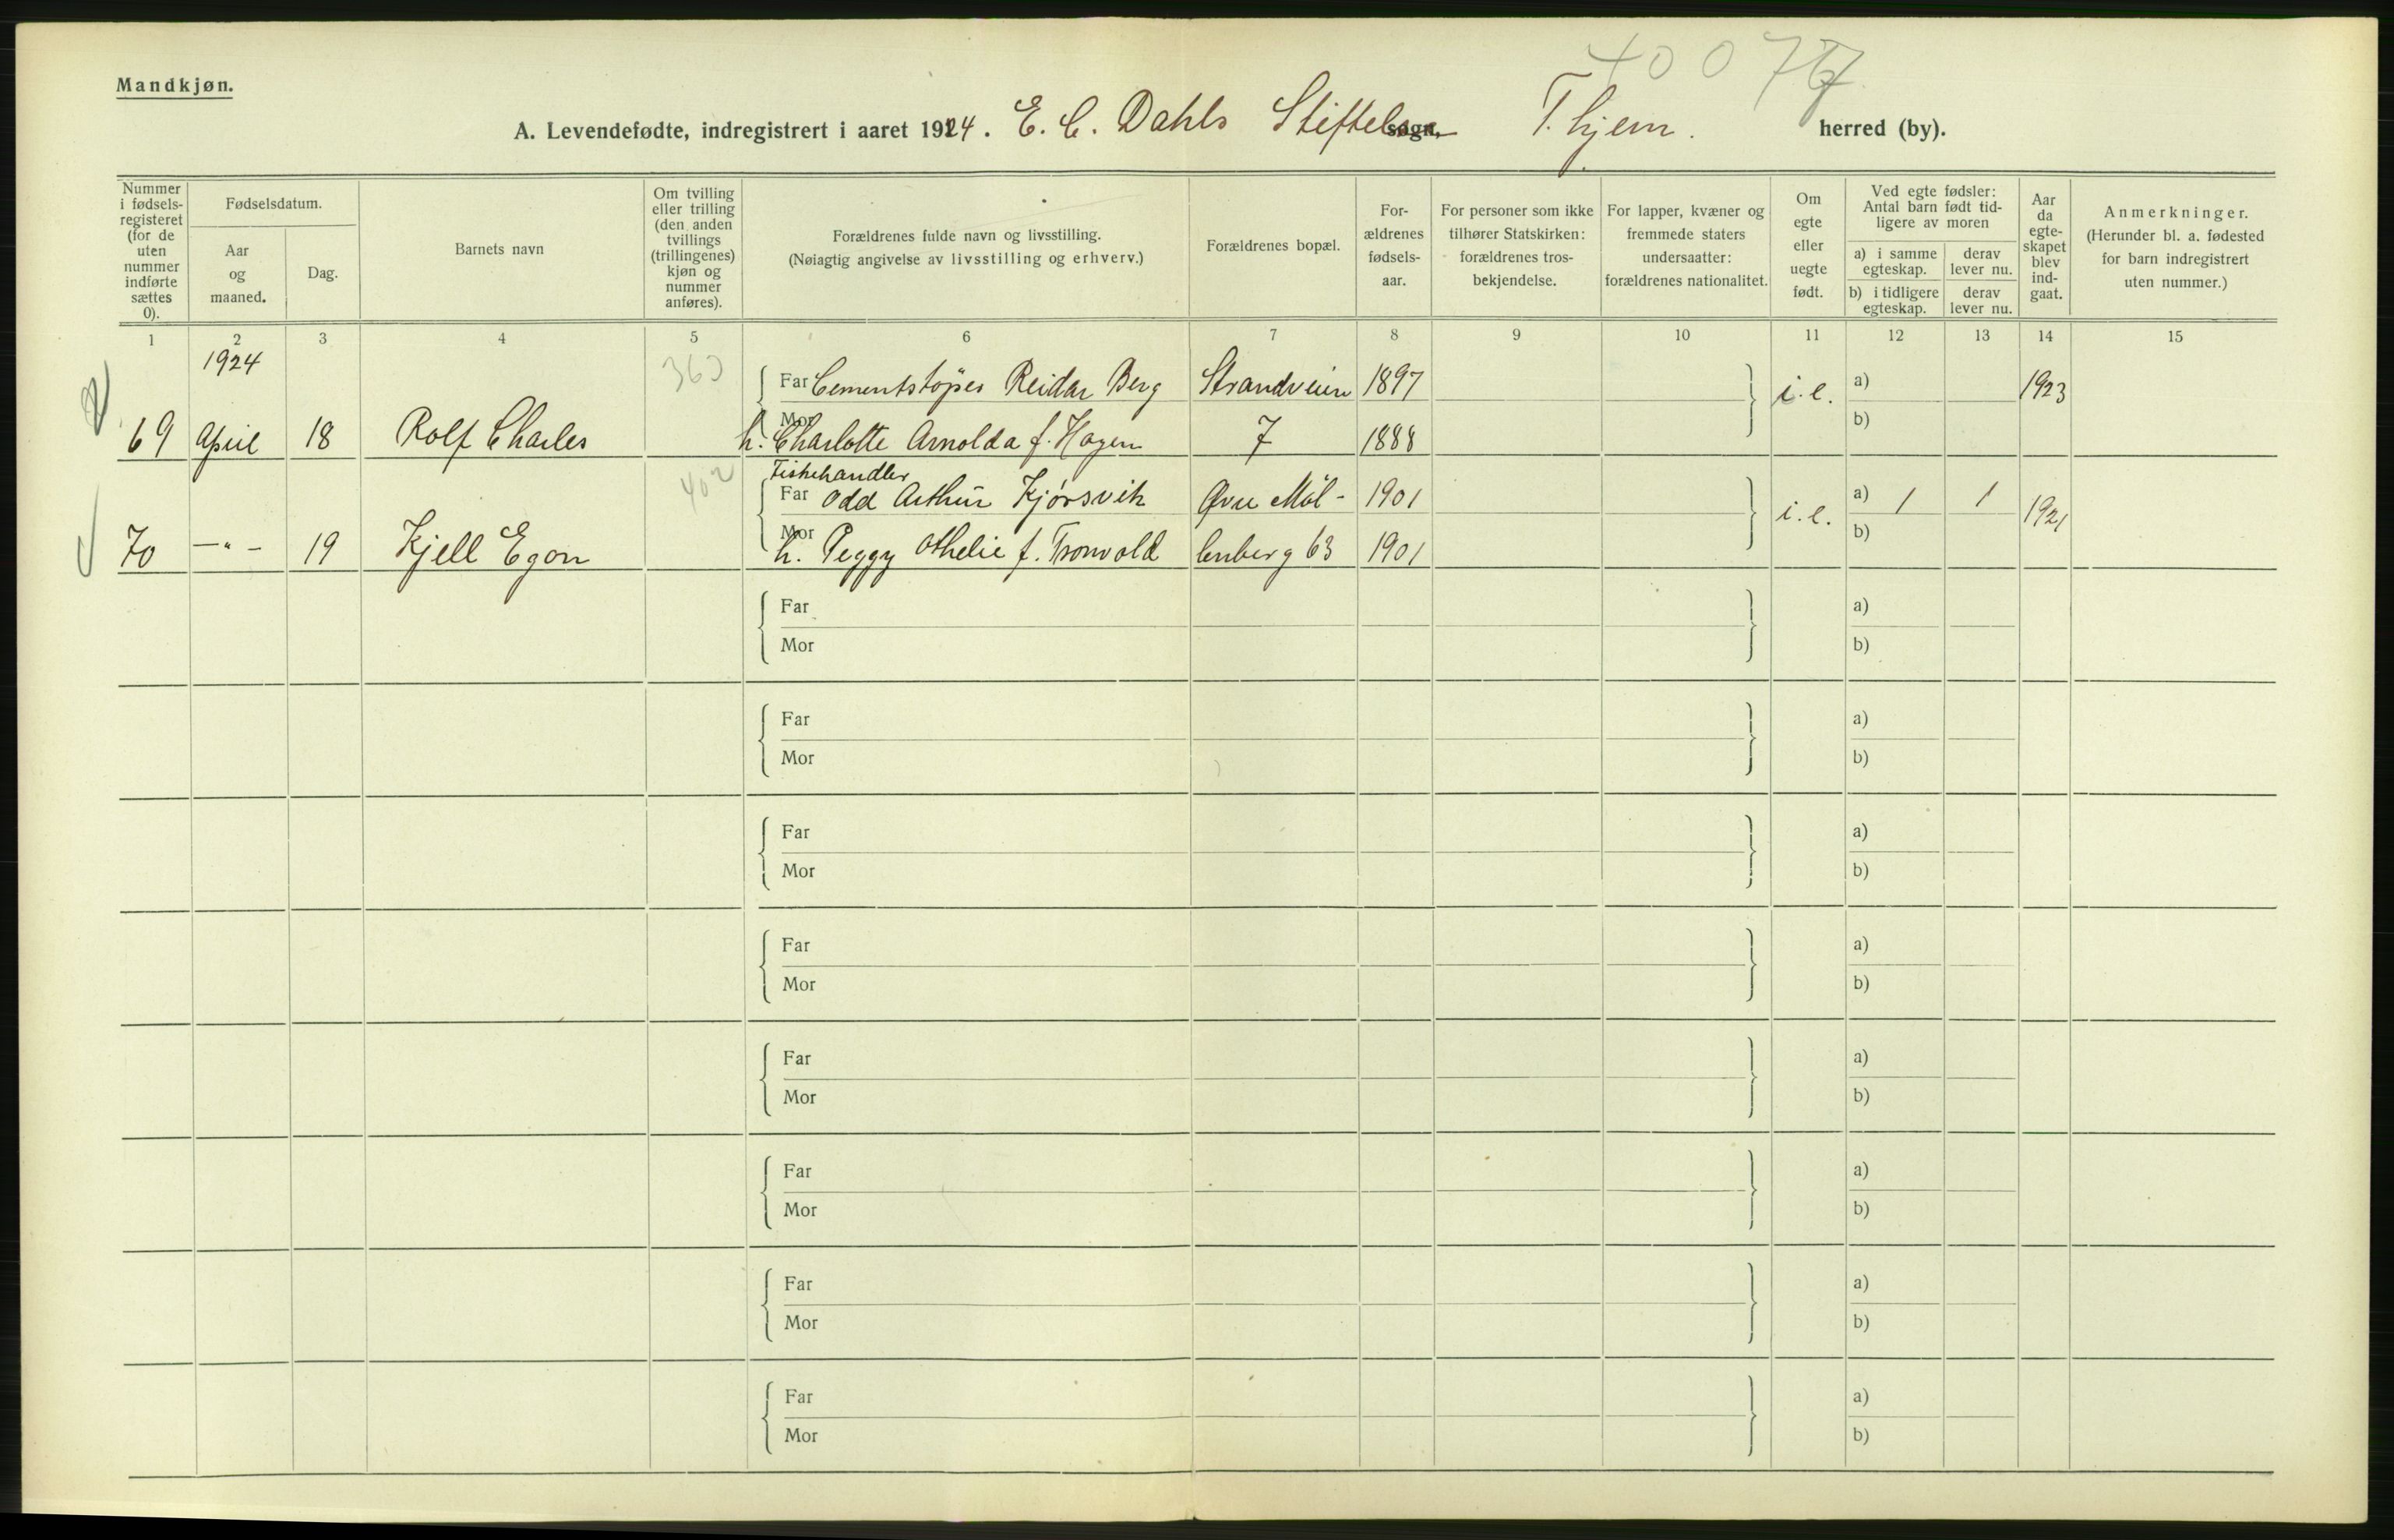 40076
Mandkjøn.
A. Levendefødte, indregistrert i aaret 1924. E. C. Dahls Stiftelse sogn, T.hjem. herred (by).
Nummer i fødsels-registeret (for de uten nummer indførte sættes 0).
Fødselsdatum.
Aar og maaned.
Dag.
Barnets navn
Om tvilling eller trilling (den anden tvillings (trillingenes) kjøn og nummer anføres).
Forældrenes fulde navn og livsstilling.
(Nøiagtig angivelse av livsstilling og erhverv.)
Forældrenes bopæl.
For-ældrenes fødsels-aar.
For personer som ikke tilhører Statskirken: forældrenes tros-bekjendelse.
For lapper, kvæner og fremmede staters undersaatter: forældrenes nationalitet.
Om egte eller uegte født.
Ved egte fødsler: Antal barn født tid-ligere av moren
a) i samme egteskap.
derav lever nu.
b) i tidligere egteskap.
derav lever nu.
Aar da egte-skapet blev ind-gaat.
Anmerkninger.
(Herunder bl. a. fødested for barn indregistrert uten nummer.)
1 2 3 4 5 6 7 8 9 10 11 12 13 14 15
1924 363
Far Cementstøper Reidar Berg Strandveien 1897 i.e. a) 1923
69 April 18 Rolf Charles Mor h. Charlotte Arnolda f. Hagen 7 1888 b)
402 Fiskehandler
Far Odd Arthur Kjørsvik Øvre Möl- 1901 i.e. a) 1 1 1921
70 —"— 19 Kjell Egon Mor h. Peggy Othelie f. Tronvold lenberg 63 1901 b)
Far a)
Mor b)
Far a)
Mor b)
Far a)
Mor b)
Far a)
Mor b)
Far a)
Mor b)
Far a)
Mor b)
Far a)
Mor b)
Far a)
Mor b)